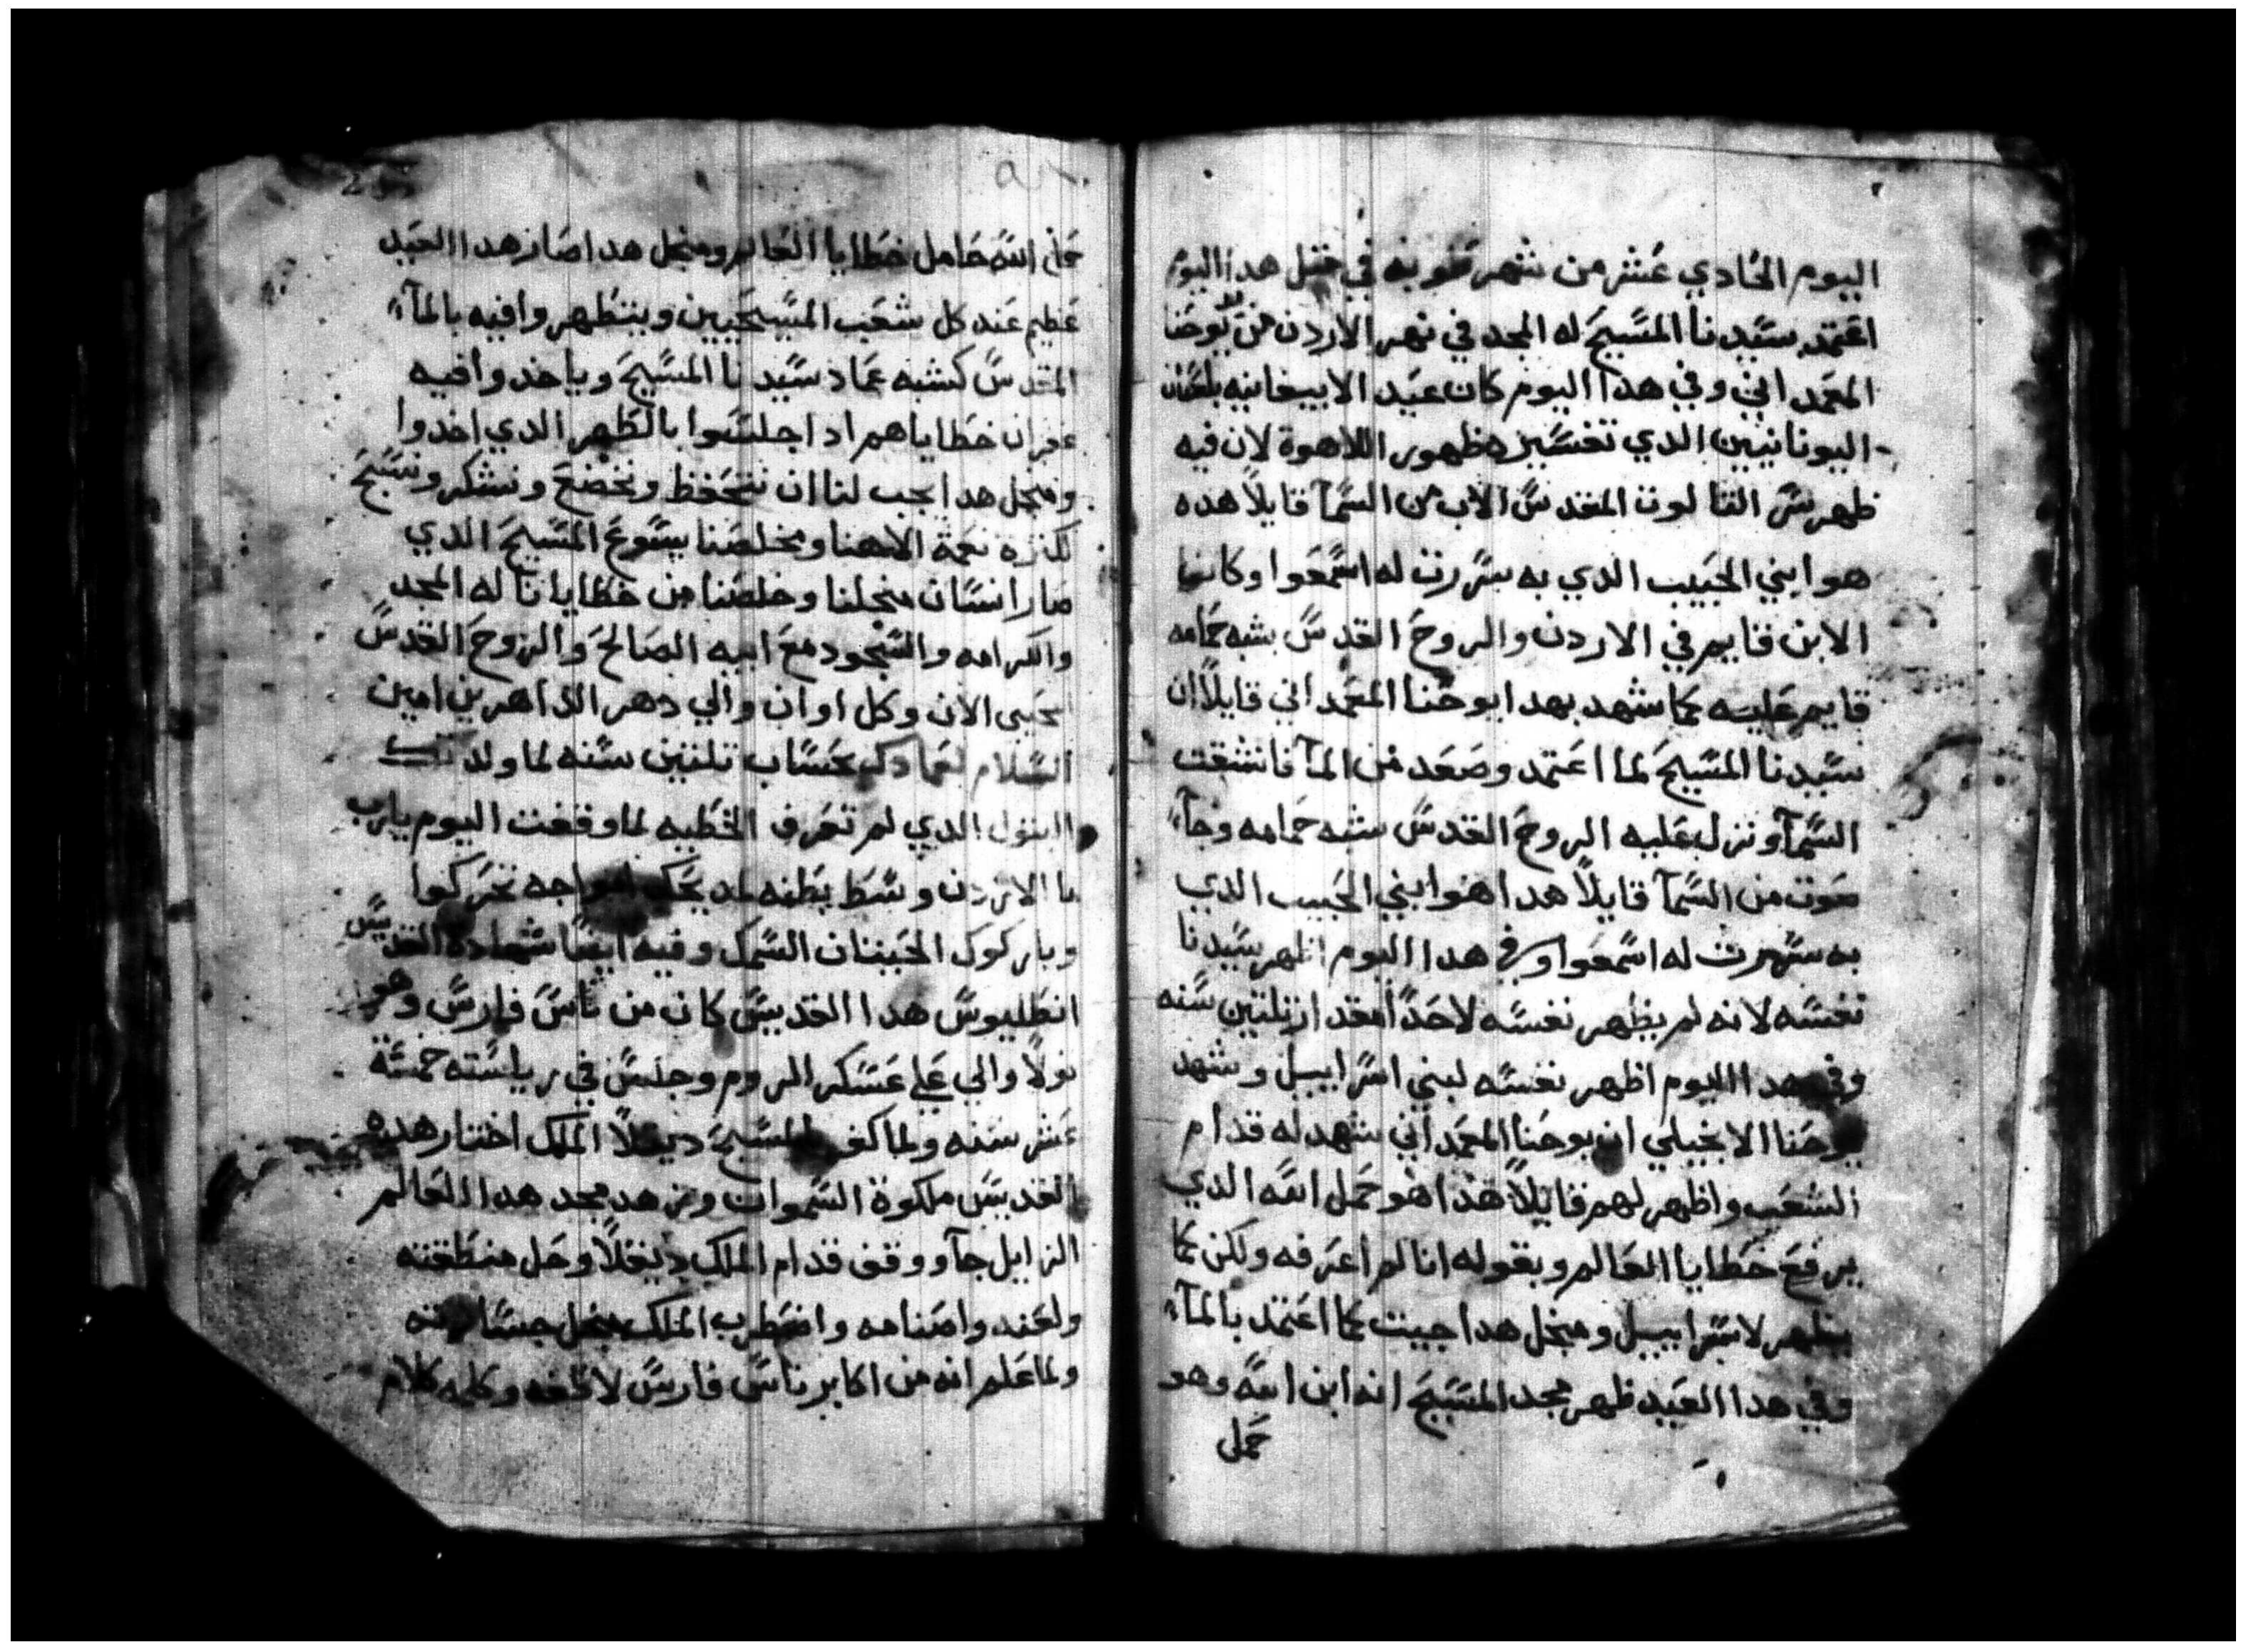 اليوم الحادي عشر من شهر طوبه في متل هدا اليوم
اعتمد سيدنا المسيح له المجد في نهر الاردن من يوحنا
المعمداني وفي هدا اليوم كان عيد الابيفانيه بلسان
اليونانيين الدي تفسيره ظهور اللاهوة لان فيه
ظهر سر التالوت المقدس الاب من السمآ قايلاً هده
هو ابني الحبيب الدي به سررت له اسمعوا وكانما
الابن قايم في الاردن والروح القدس بشبه حمامه
قايم عليه كما شهد بهدا يوحنا المعمداني قايلاً ان
سيدنا المسيح لما اعتمد وصعد من المآ فانشقت
السمآ ونزل عليه الروح القدس بشبه حمامه وجآء
صوت من السمآ قايلاً هدا هوا ابني الحبيب الدي
به سررت له اسمعوا وفي هدا اليوم اظهر سيدنا
نفسه لانه لم يظهر نفسه لاحداً مقدار تلتين سنه
وفي هدا اليوم اظهر نفسه لبني اسراييل وشهد
يوحنا الانجيلي ان يوحنا المعمداني شهد له قدام
الشعب واظهر لهم قايلاً هدا هو حمل الله الدي
يرفع خطايا العالم وبقوله انا لم اعرفه ولكن كما
يظهر لاسراييل ومنجل هدا جييت كما اعتمد بالمآء
وفي هدا العيد ظهر مجد المسيح انه ابن الله وهو
حمل
حمل الله حامل خطايا العالم ومنجل هدا صار هدا العيد
عظيم عند كل شعب المسيحيين ويتطهروا فيه بالمآء
المقدس كشبه عماد سيدنا المسيح وياخدوا فيه
غفران خطاياهم ادا جلسوا بالطهر الدي اخدوا
ومنجل هدا يجب لنا ان نتحفظ ونخضع ونشكر ونسبح
لكترة نعمة الاهنا ومخلصنا يسوع المسيح الدي
صار انسان منجلنا وخلصنا من خطايانا له المجد
والكرامه والسجود مع ابيه الصالح والروح القدس
محيي الان وكل اوان والي دهر الداهرين امين
السلام لعمادك بحساب تلتين سنه لما ولدتك
البتول الدي لم تعرف الخطيه لما وقفت اليوم يارب
الاردن وسط بطنه امواجه تحركوا
وباركوك الحيتان السمك وفيه ايضاً شهادة القديس
انطليوس هدا القديس كان من ناس فارس وهو
تولا والي علي عسكر الروم وجلس في رياسته خمسة
عشر سنه ولما كفر بالمسيح ديقلا الملك اختار هده
القديس ملكوة السموات وزهد مجد هدا العالم
الزايل جآ ووقف قدام الملك ديقلاً وحل منطقته
ولعنه واصنامه واضطرب الملك منجل جسارته
ولما علم انه من اكابر ناس فارس لاطفه وكلمه كلام